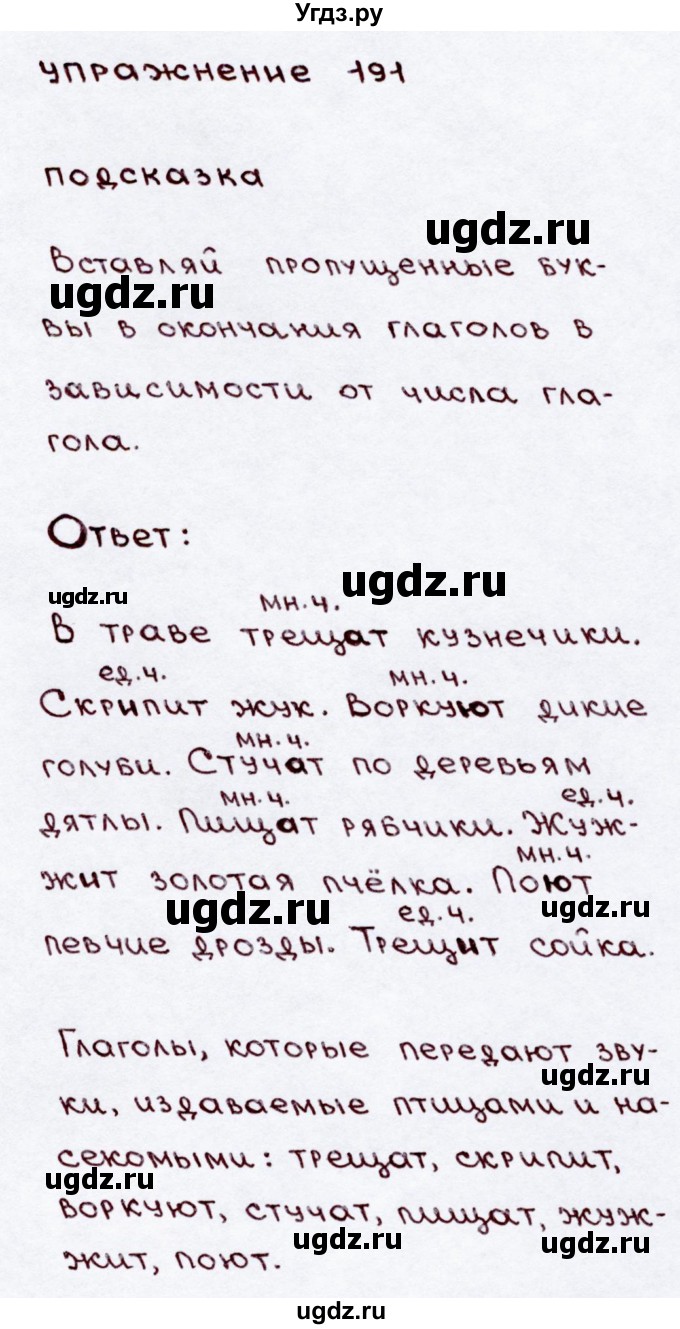 Угдз.ру
упражнение 191
подсказка
ugdz.ru
Вставляй пропущенные бук-
ugdz.ru
вы в окончания глаголов в
зависимости от числа гла-
гола.
Ответ:
ugdz.ru
ugdz.ru
мн.ч.
В траве трещат кузнечики.
ед.ч. мн.ч.
Скрипит жук. Воркуют дикие
мн.ч.
голуби. Стучат по деревьям
мн.ч. ед.ч.
дятлы. Пищат рябчики. Жуж-
мн.ч.
жит золотая пчёлка. Поют
ugdz.ru ед.ч. ugdz.ru
певчие дрозды. Трещит сойка.
Глаголы, которые передают зву-
ugdz.ru
ки, издаваемые птицами и на-
секомыми: трещат, скрипит,
ugdz.ru
воркуют, стучат, пищат, жуж-
ugdz.ru ugdz.ru
жит, поют.
ugdz.ru